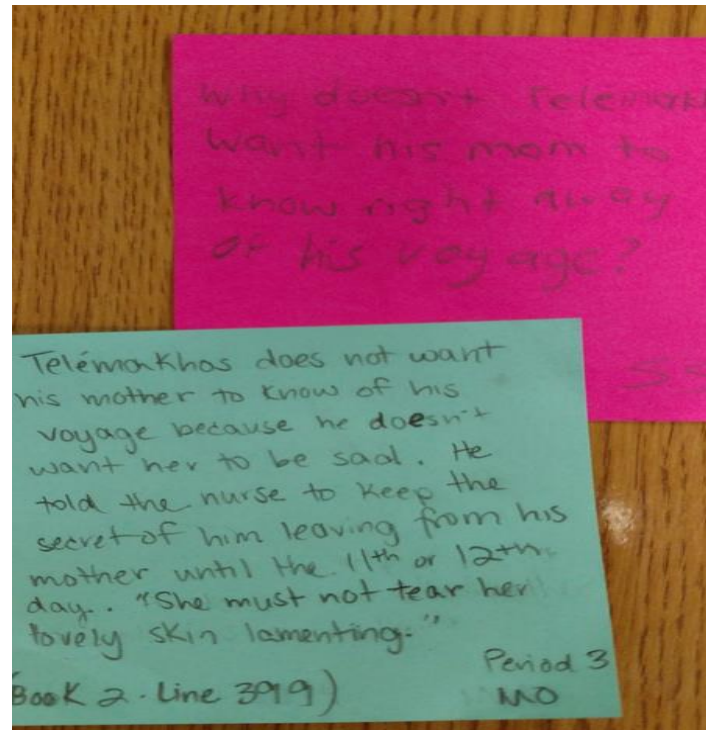 Why doesn't Telemak
want his mom to
know right away
of his voyage?
Telémakhos does not want
his mother to know of his
voyage because he doesn't
want her to be sad. He
told the nurse to keep the
secret of him leaving from his
mother until the 11th or 12th
day. "She must not tear her
lovely skin lamenting."
Book 2. Line 399)
Period 3
MO